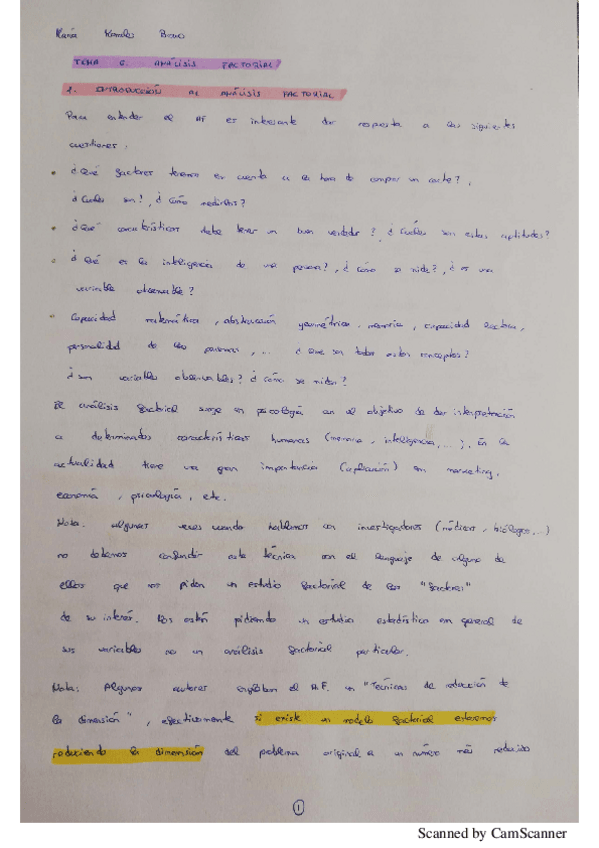 TEMA 6. ANÁLISIS FACTORIAL
1. INTRODUCCIÓN AL ANÁLISIS FACTORIAL
Para entender el AF es interesante dar respuesta a las siguientes
cuestiones:
¿Qué factores tenemos en cuenta a la hora de comprar un coche?,
¿Cuáles son?, ¿Cómo medirlos?
¿Qué características debe tener un buen vendedor? ¿Cuáles son estas aptitudes?
¿Qué es la inteligencia de una persona?, ¿cómo se mide?, ¿es una
variable observable?
Capacidad matemática, abstracción geométrica, memoria, capacidad lectora,
personalidad de las personas, ... ¿Qué son todos estos conceptos?
¿son variables observables? ¿cómo se miden?
El análisis factorial surge en psicología con el objetivo de dar interpretación
a determinadas características humanas (memoria, inteligencia, ...). En la
actualidad tiene una gran importancia (aplicación) en marketing,
economía, psicología, etc.
Nota: algunas veces cuando hablamos con investigadores (médicos, biólogos, ...)
no debemos confundir esta técnica con el lenguaje de alguno de
ellos que nos piden un estudio factorial de los "factores"
de su interés. Nos están pidiendo un estudio estadístico en general de
sus variables no un análisis factorial particular.
Nota: Algunos autores engloban el A.F. en "Técnicas de reducción de
la dimensión", efectivamente si existe un modelo factorial estaremos
reduciendo la dimensión del problema original a un número más reducido
1
Scanned by CamScanner